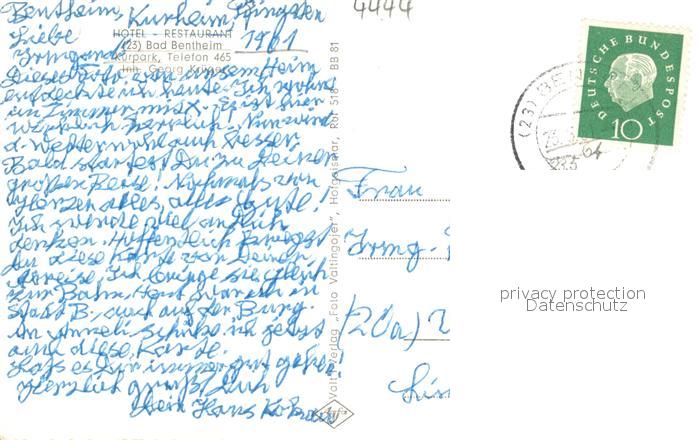 Bentheim, Kurheim, Pfingsten
1961
4444
Liebe
Irmgard!
HOTEL - RESTAURANT
(23) Bad Bentheim
Kurpark, Telefon 465
Inh. Georg Krüger
Dieses Foto von unserem Heim
entdeckte ich heute. Ich wohne
im Zimmer mit X. Es ist hier
wirklich herrlich. Nun wird
d. Wetter wohl auch besser.
Bald startest Du zu Deiner
großen Reise! Nochmals von
Herzen alles, alles Gute!
Ich werde viel an Dich
denken. Hoffentlich kriegst
Du diese Karte vor Deiner
Abreise. Ich bringe sie gleich
zur Bahn. Heut war ich in
Stadt B. auch auf der Burg.
An Anneli schicke ich jetzt
auch diese Karte.
Laß es Dir immer gut gehen!
Herzlich grüßt Dich
Dein Hans
Valt-Verlag "Foto Valtingojer", Hofgeismar, Ruf 518 BB 81
Agfa
DEUTSCHE BUNDESPOST
10
(23) BEN
Frau
Irmg.
(20a)
privacy protection
Datenschutz